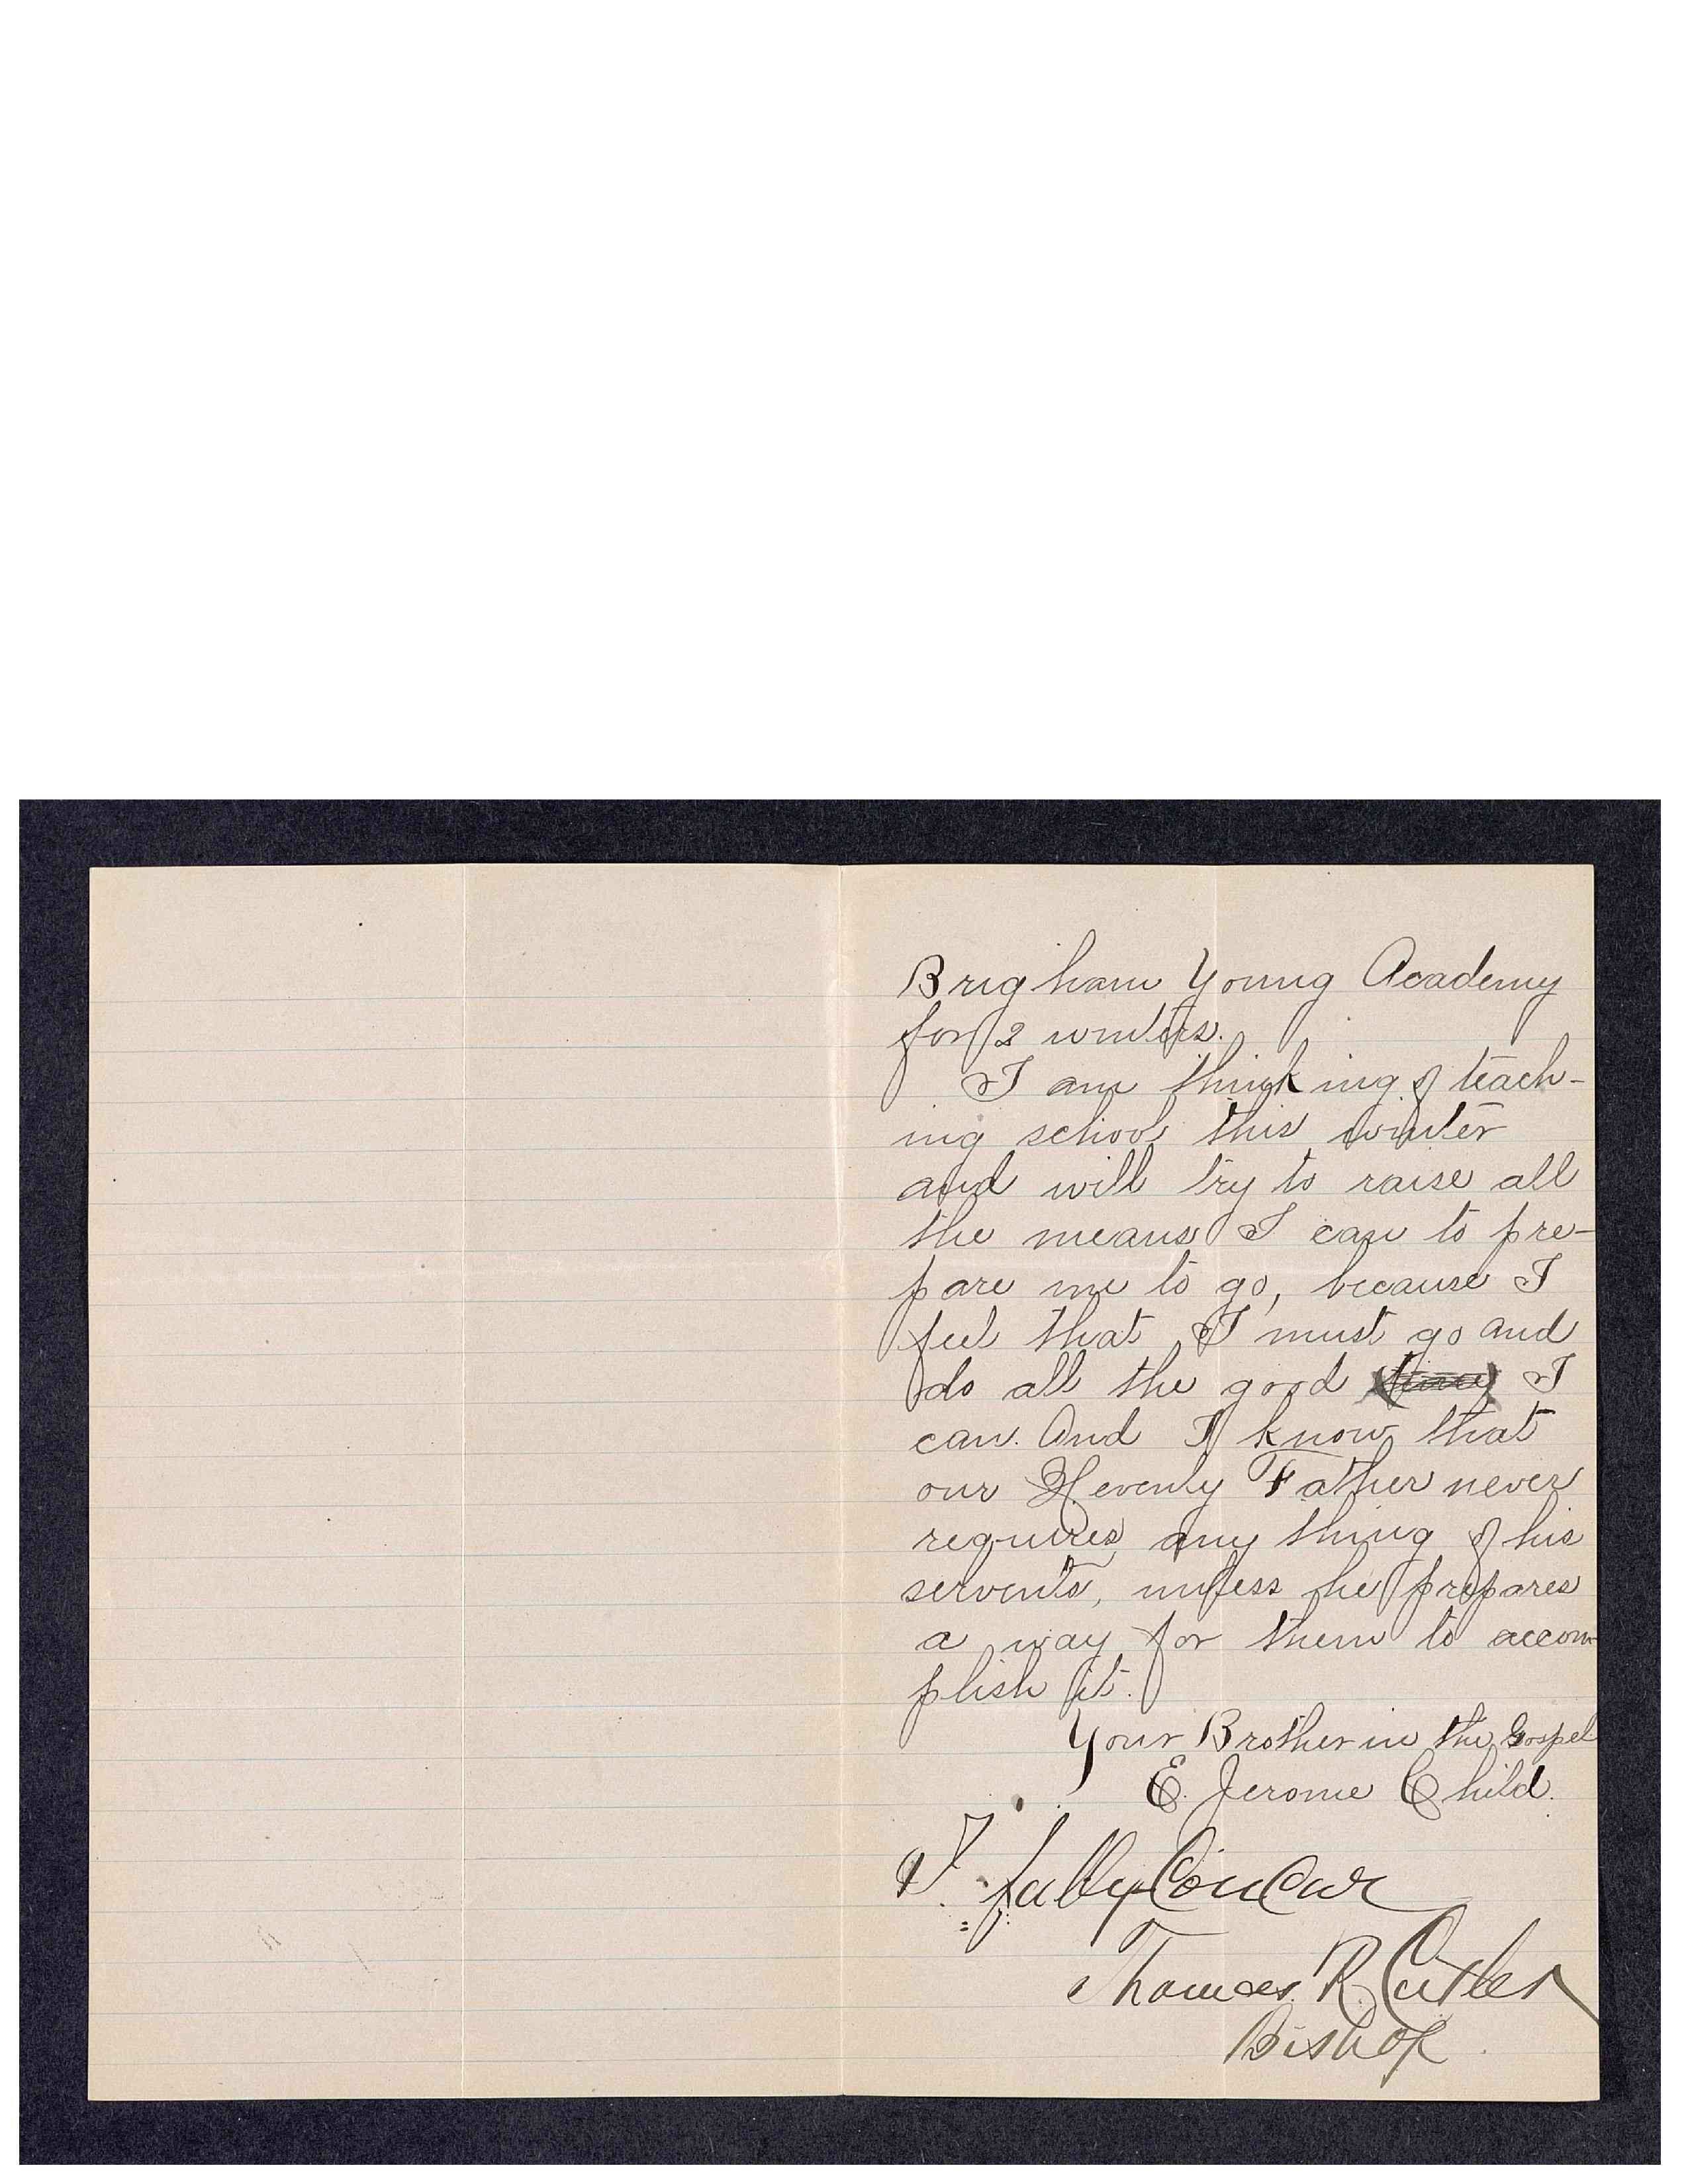 Brigham Young Academy
for 2 winters.
I am thinking of teach-
ing school this winter
and will try to raise all
the means I can to pre-
pare me to go, because I
feel that I must go and
do all the good I
can. And I know that
our Hevenly Father never
requires any thing of his
servents, unless he prepares
a way for them to accom-
plish it.
Your Brother in the Gospel
E. Jerome Child.
I fully Concur
Thomas R. Cutler
Bishop